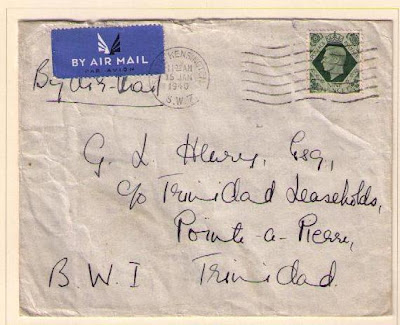 BY AIR MAIL
PAR AVION
KENSINGTON
15 JAN
1940
S.W.7
By Air Mail
G. L. Henry, Esq.,
c/o Trinidad Leaseholds,
Pointe-a-Pierre,
B.W.I Trinidad.